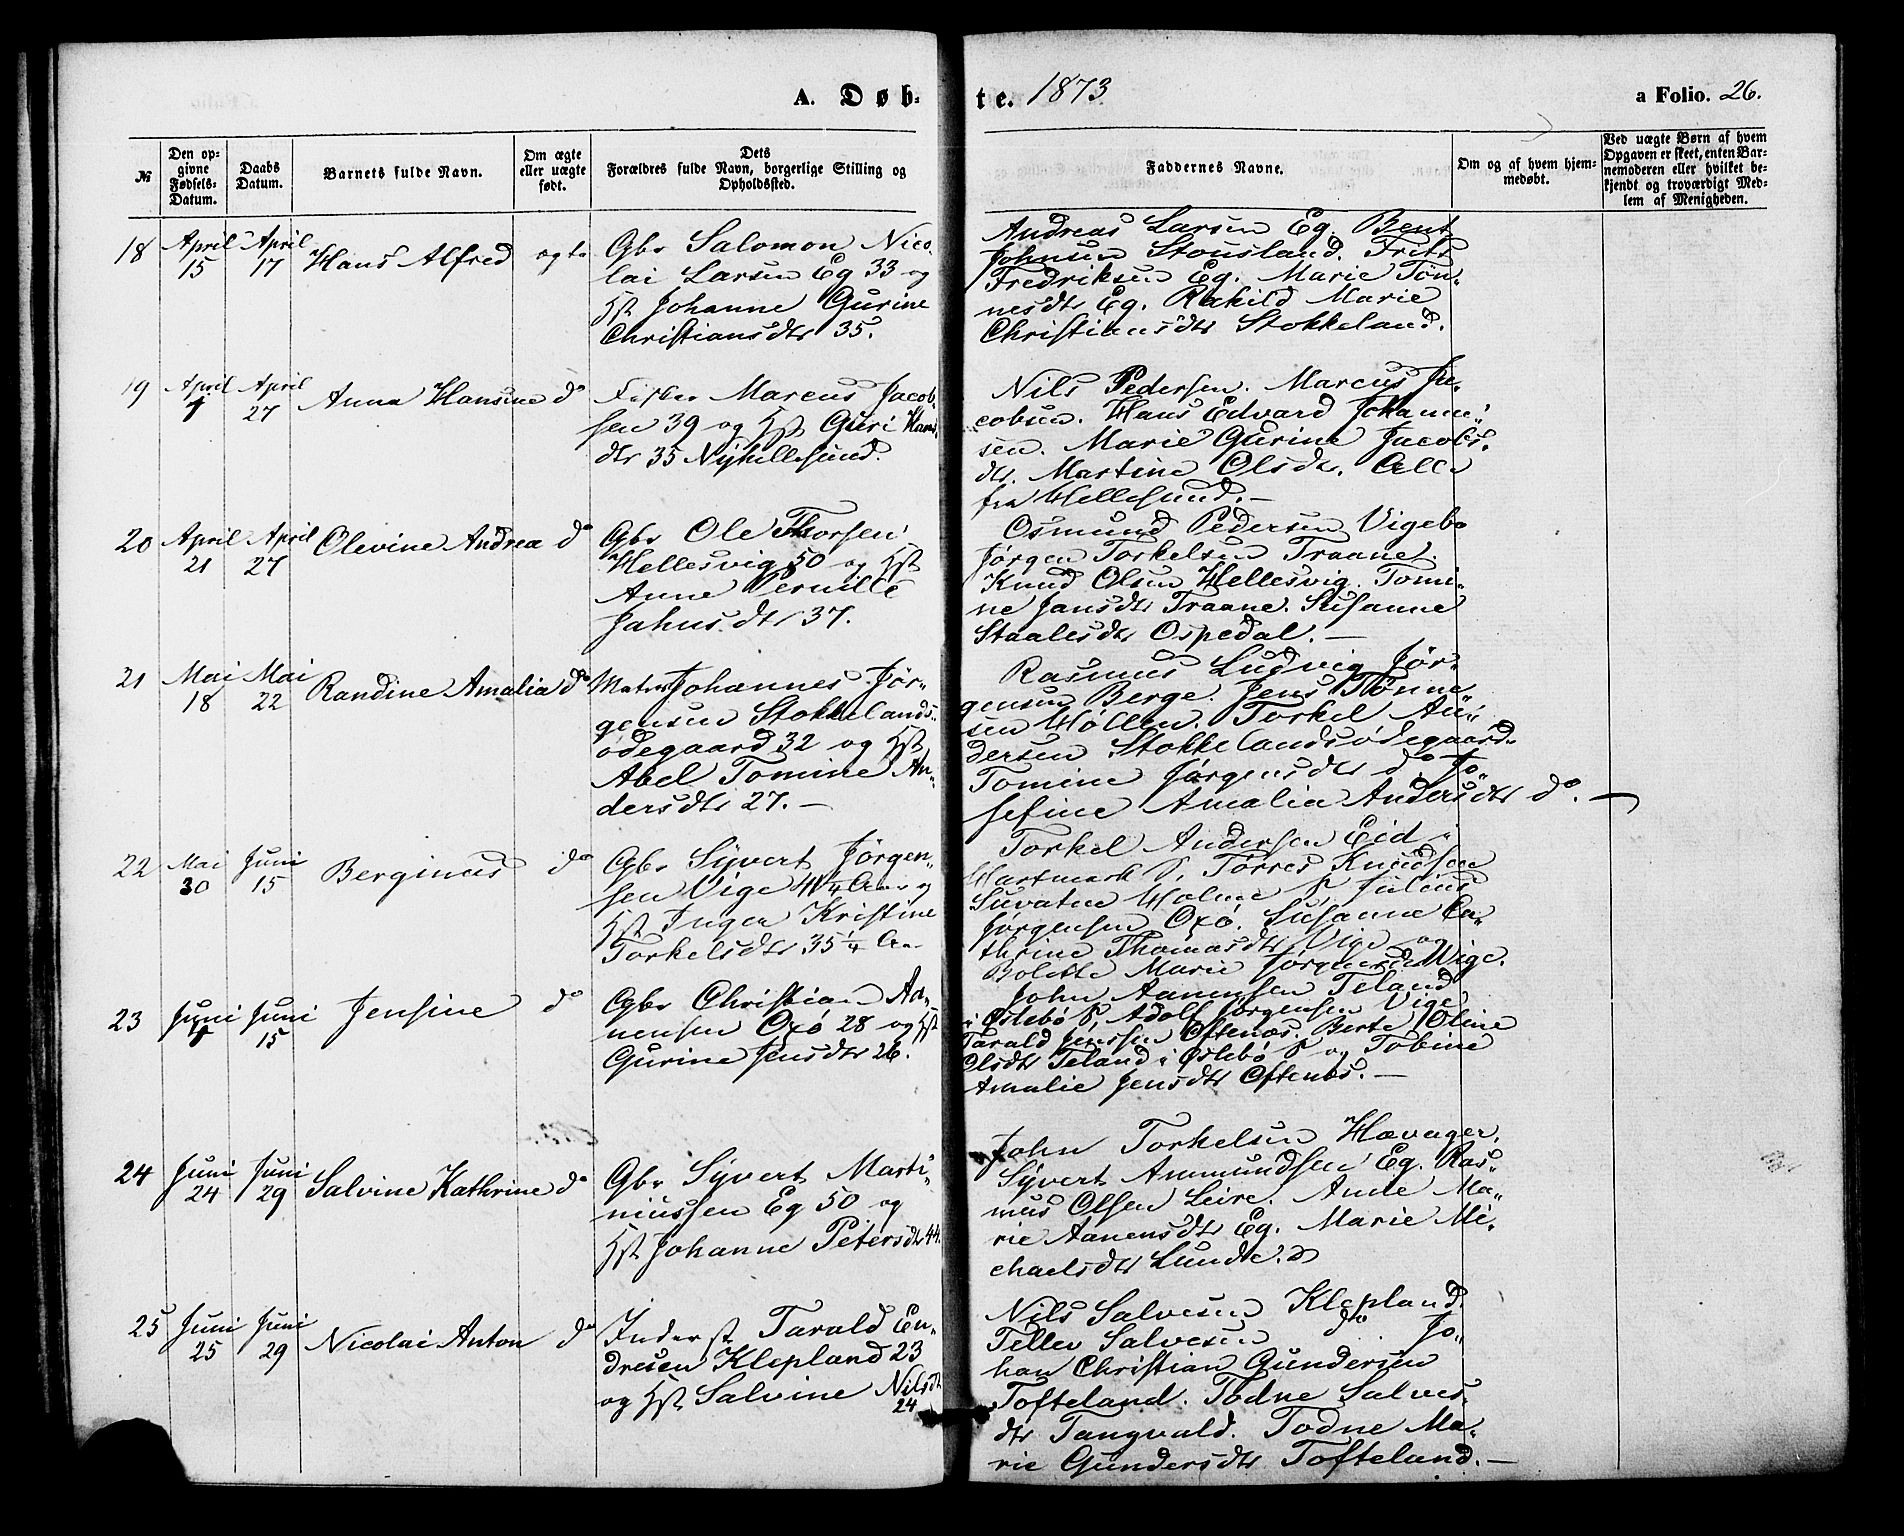 A. Døb-
te. 1873
a Folio. 26.
№
Den op-
givne
Fødsels-
Datum.
Daabs
Datum.
Barnets fulde Navn.
Om ægte
eller uægte
født.
Dets
Forældres fulde Navn, borgerlige Stilling og
Opholdssted.
Faddernes Navne.
Om og af hvem hjem-
medøbt.
Ved uægte Børn af hvem
Opgaven er skeet, enten Bar-
nemoderen eller hvilket be-
kjendt og troværdigt Med-
lem af Menigheden.
18 April 15 April 17 Hans Alfred ægte
Gbr Salomon Nico-
lai Larsen Eg 33 og
Hst Johanne Gurine
Christiansdtr 35.
Andreas Larsen Eg. Bent
Johnsen Stousland. Frits
Fredriksen Eg. Marie Tøn-
nesdtr Eg. Rakild Marie
Christiansdtr Stokkeland.
19 April 1 April 27 Anna Hansine do
Fisker Marcus Jacob-
sen 39 og Hst Guri Hans
dtr 35 Nyhellesund.
Nils Pedersen. Marcus Ja-
cobsen. Hans Edvard Johann-
sen. Marie Gurine Jacobs-
dtr. Martine Olsdr. Alle
fra Hellesund.—
20 April 21 April 27 Olevine Andrea do
Gbr Ole Thorsen
Hellesvig 50 og Hst
Anne Pernille
Jahnsdtr 37.
Osmund Pedersen Vigebo
Jørgen Torkelsen Traane.
Knud Olsen Hellesvig. Tomi-
ne Jansdtr Traane. Susanne
Staalesdtr Ospedal.—
21 Mai 18 Mai 22 Randine Amalia do
Matros Johannes Jør-
gensen Stokkelands-
ødegaard 32 og Hst
Abel Tomine An-
dersdtr 27.—
Rasmus Ludvig Jør-
gensen Berge. Jens Tønne-
sen Høllen. Torkel An-
dersen Stokkelandsødegaard.
Tomine Jørgensdtr do. Jo-
sefine Amalia Andersdtr do.—
22 Mai 30 Juni 15 Berginus do
Gbr Syvert Jørgen-
sen Vige 41 1/4 Aar og
Hst Inger Kristine
Torkelsdtr 35 1/4 Aar
Torkel Andersen Eid i
Hartmark S. Tørres Knudsen
Holme S. Julius
Jørgensen Oxø. Susanne Ca-
thrine Thomasdtr Vige og
Bolette Marie Jørgensdtr Vige.
23 Juni 1 Juni 15 Jensine do
Gbr Christian Aa-
nensen Oxø 28 og Hst
Gurine Jensdtr 26.
John Aanensen Teland
i Øslebø S. Adolf Jørgensen Vige.
Tarald Jenssen Oftenæs. Berte Oline
Olsdtr Teland i Øslebø S og Tobine
Amalie Jensdtr Oftenæs.—
24 Juni 24 Juni 29 Salvine Kathrine do
Gbr Syvert Marti-
niussen Eg 50 og
Hst Johanne Petersdtr 44.
John Torkelsen Hævager.
Syvert Ammundsen Eg. Ras-
mus Olsen Leire. Anne Ma-
rie Aanensdtr Eg. Marie Mi-
chaelsdtr Lunde.
25 Juni 25 Juni 29 Nicolai Anton do
Inderst Tarald En-
dresen Klepland 23
og Hst Salvine Nilsdtr
24
Nils Salvesen Klepland.
Tellev Salvesen do. Jo-
han Christian Gundersen
Tofteland. Todne Salves-
dtr Tangvald. Todne Ma-
rie Gundersdtr Tofteland.—